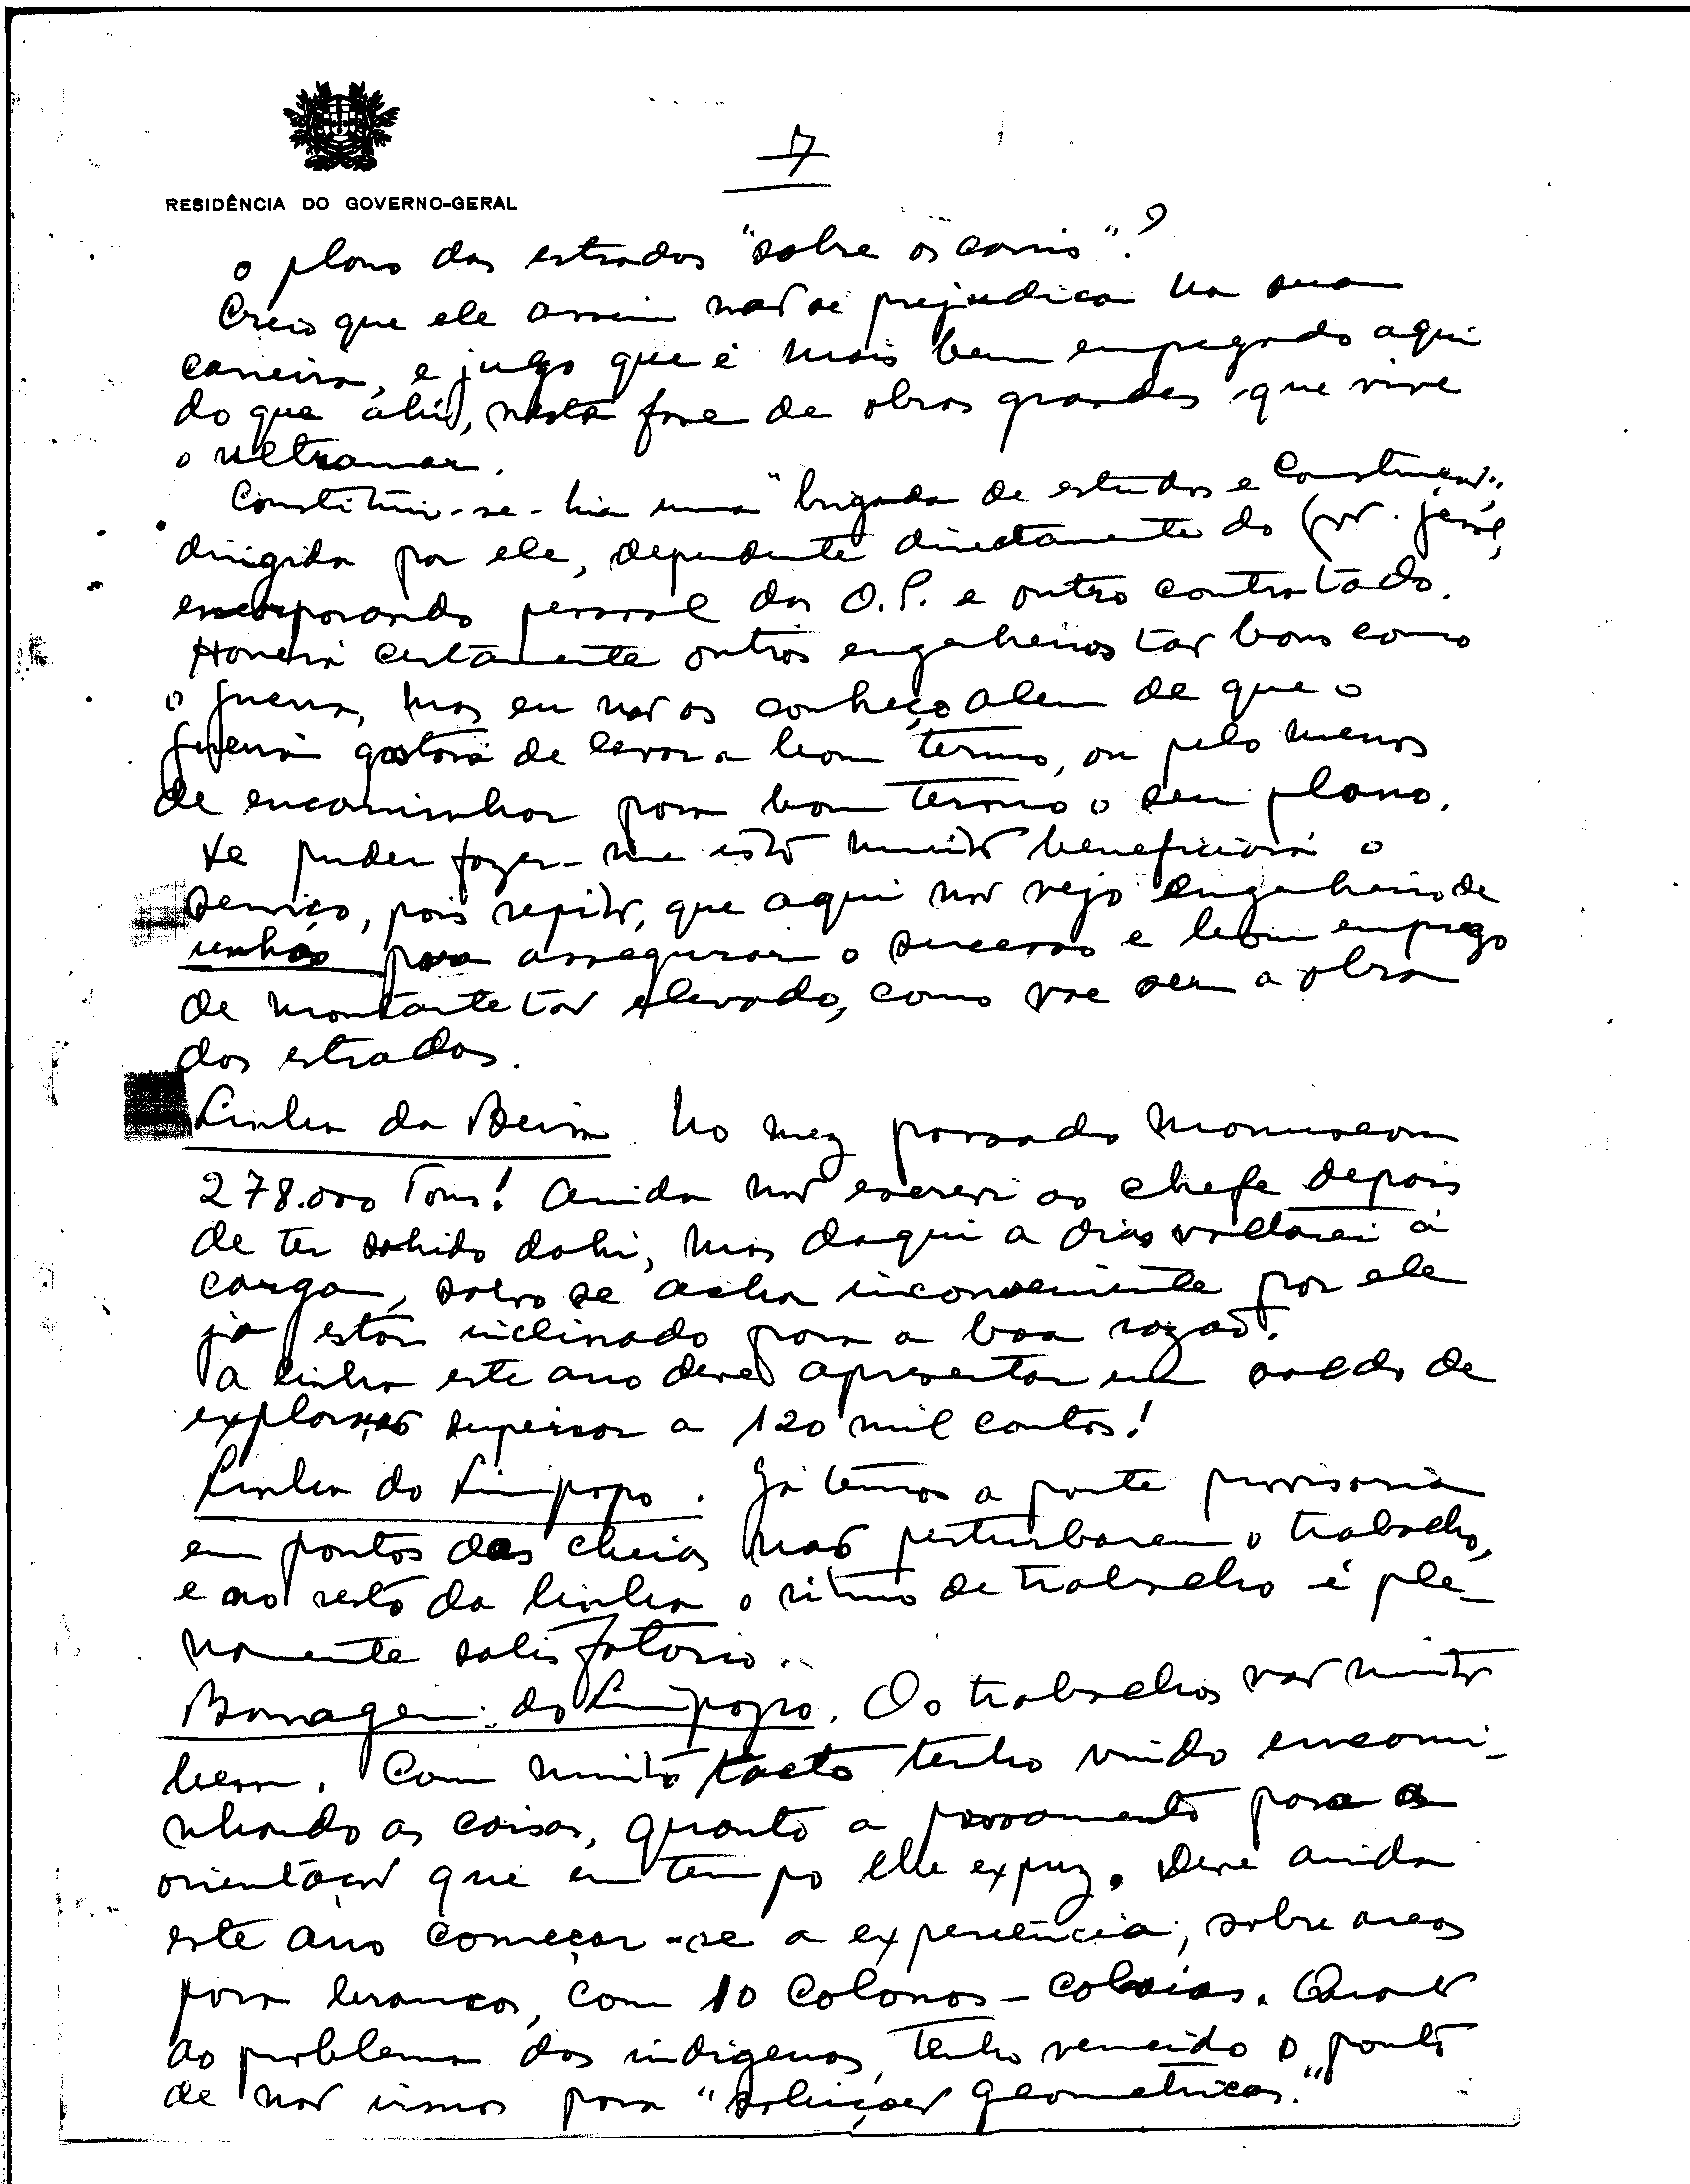 7
RESIDÊNCIA DO GOVERNO-GERAL
o plano das estradas "sobre os carris"?
Creio que ele assim não se prejudica na sua
carreira, e julgo que é mais bem empregado aqui
do que ahi, nesta fase de obras grandes que vive
o ultramar.
Constituir-se-hia uma "brigada de estudos e construção",
dirigida por ele, dependente directamente do Gov. geral,
encorporando pessoal das O.P. e outro contratado.
Haverá certamente outros engenheiros tão bons como
o Guerra, mas eu não os conheço alem de que o
Guerra gostará de levar a bom termo, ou pelo menos
de encaminhar para bom termo o seu plano.
Se puder fazer-me isto muito beneficiará o
serviço, pois repito, que aqui não vejo engenheiro de
unhas para assegurar o sucesso e bom emprego
de montante tão elevado, como vae ser a obra
das estradas.
Linha da Beira No mez passado manusearam
278.000 Tons! Ainda não escrevi ao chefe depois
de ter sahido dahi, mas daqui a dias voltarei á
carga, salvo se achar inconveniente por ele
já estar inclinado para a boa razão.
A linha este ano deve apresentar um saldo de
exploração superior a 120 mil contos!
Linha do Limpopo. Já temos a ponte provisoria
em pontos das cheias não perturbarem o trabalho,
e no resto da linha o ritmo de trabalho é ple-
namente satisfatorio.
Barragem do Limpopo. Os trabalhos vão muito
bem. Com muito tacto tenho vindo encami-
nhando as coisas, quanto a povoamento para a
orientação que em tempo lhe expuz. Deve ainda
este ano começar-se a experiência, sobre areas
para brancos, com 10 colonos-cobaias. Quanto
ao problema dos indigenas, tenho vencido o ponto
de não irmos para "soluções geometricas."